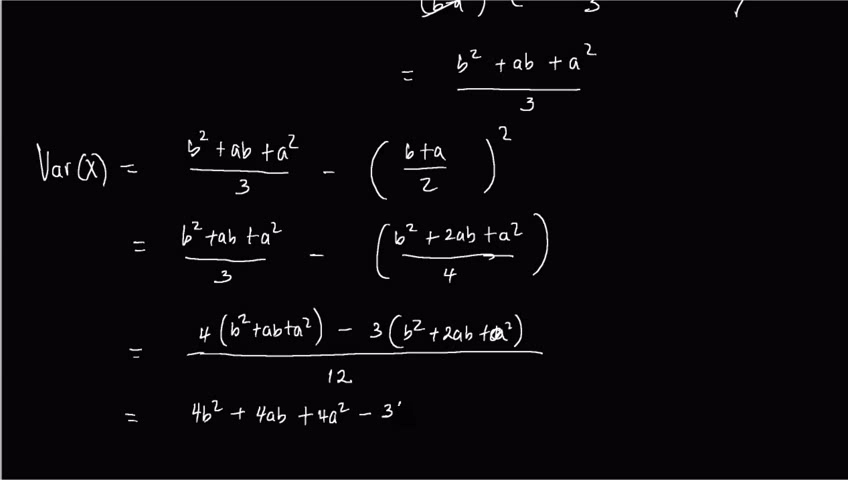 (b-a) ( 3 )
= b² + ab + a² / 3
Var(X) = b² + ab + a² / 3 - ( b+a / 2 )²
= b² + ab + a² / 3 - ( b² + 2ab + a² / 4 )
= 4(b² + ab + a²) - 3(b² + 2ab + a²) / 12
= 4b² + 4ab + 4a² - 3